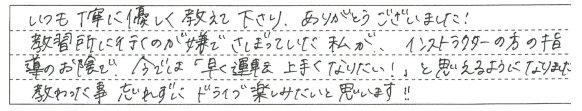 いつも丁寧に優しく教えて下さり、ありがとうございました！
教習所に行くのが嫌でさぼっていた私が、インストラクターの方の指
導のお陰で、今では「早く運転上手くなりたい！」と思えるようになりました
教わった事忘れずに ドライブ楽しみたいと思います!!